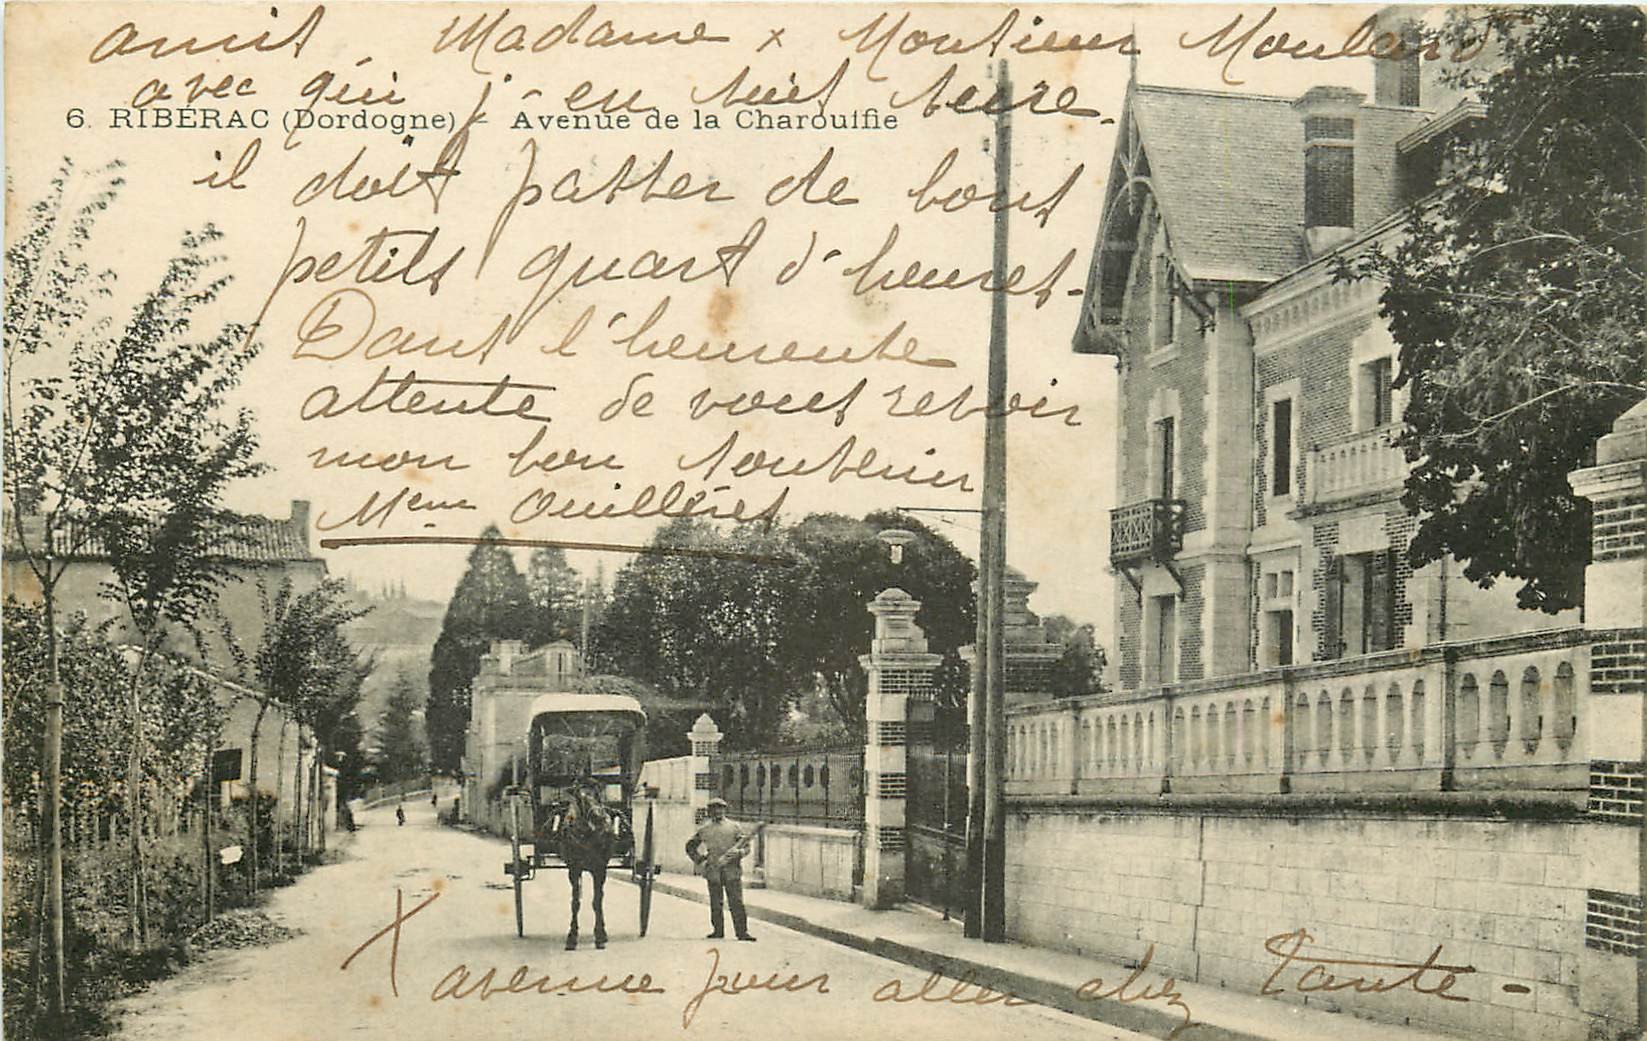 amis Madame x Monsieur Moulard
avec qui j'en suis sure.
6. RIBÉRAC (Dordogne) - Avenue de la Charouifie
il doit passer de bons
petits quart d'heures.
Dans l'heureuse
attente de vous revoir
mon bon souvenir
Mme Ouillères
X avenue pour aller chez Tante -